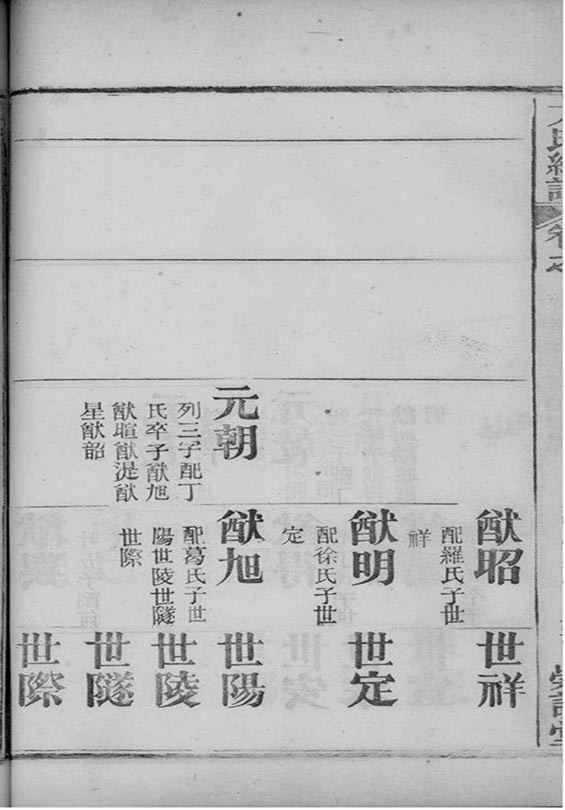 元朝
列三子配丁
氏卒子猷旭
猷暄猷湜猷
星猷韶
猷昭
配羅氏子世
祥
猷明
配徐氏子世
定
猷旭
配葛氏子世
陽世陵世隧
世際
世祥
世定
世陽
世陵
世隧
世際